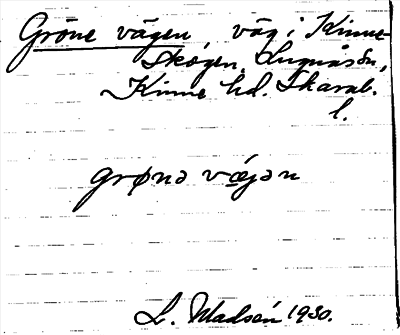 Gröne vägen, väg i Kinne-
skogen, Lugnås sn,
Kinne hd. Skarab.
l.
grønə vægən
L. Madsén 1930.